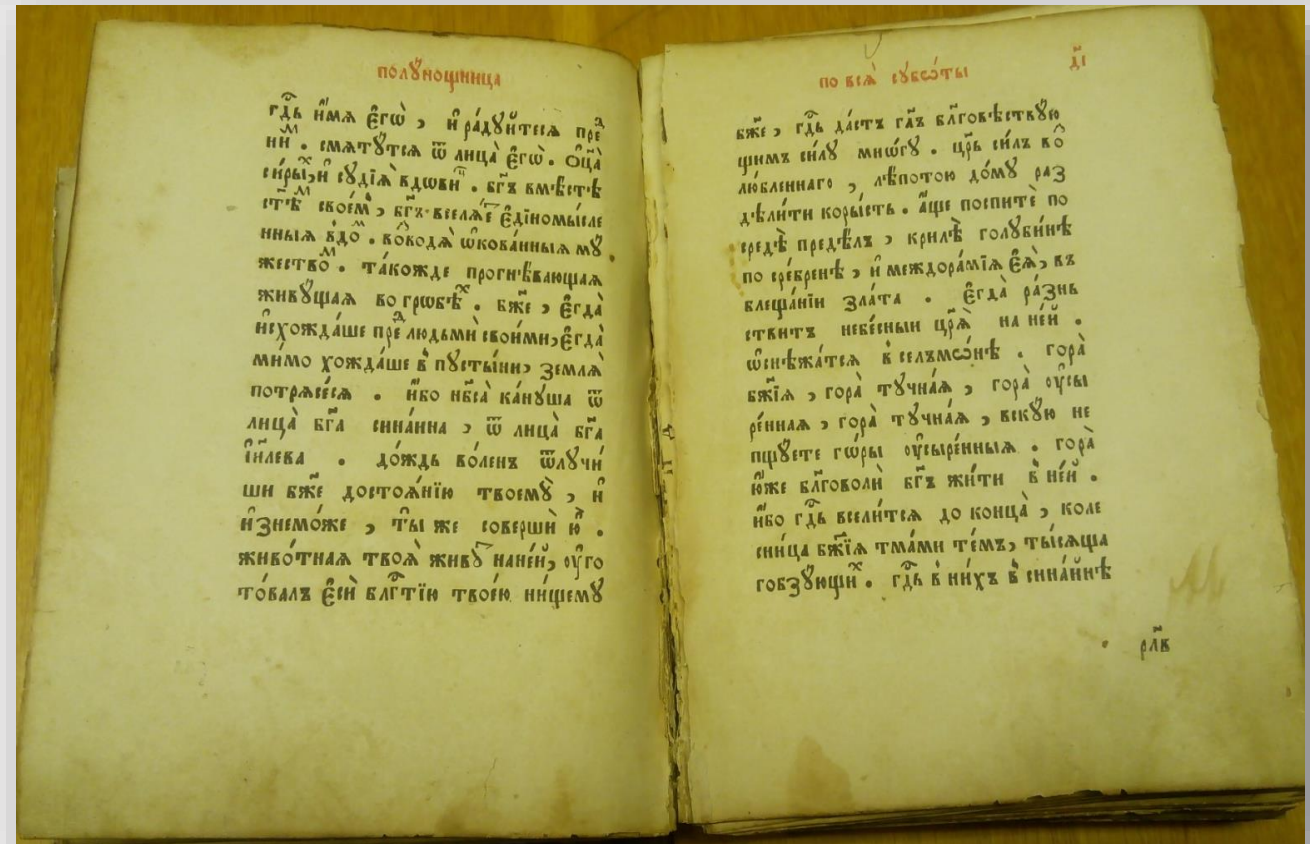 полꙋнощница
гдⷭ҇ь и҆́мѧ є҆гѡ̀, и҆ ра́дꙋйтесѧ преⷣ
ниⷨ. смѧтꙋ́тсѧ ѿ лица̀ є҆гѡ̀. ѻ҆ц҃а̀
си́рыⷯ, и҆ сꙋдїѧ̀ вдови́ⷰ. бг҃ъ вмѣ́стѣ
ст҃ѣ́ⷨ своеⷨ, бг҃ъ вселѧ́еⷮ є҆диномы́сле
нныѧ вдоⷨ. во́водѧ̀ ѡ҆кова́нныѧ мꙋ́
жествоⷨ. та́кожде прогнѣ́вающаѧ
живꙋ́щаѧ во грѡбѣ́ⷯ. бж҃е, є҆гда̀
и҆схожда́ше преⷣ людьмѝ свои́ми, є҆гда̀
мимо хожда́ше в пꙋсты́ни, землѧ̀
потрѧсе́сѧ. и҆́бо нб҃са̀ ка́нꙋша ѿ
лица̀ бг҃а сина́ина, ѿ лица̀ бг҃а
і҆и҃лева. до́ждь во́ленъ ѿлꙋчи́
ши бж҃е достоѧ́нїю твоемꙋ̀, и҆
и҆знемо́же, ты́ же совершѝ ю҆̀.
живо́тнаѧ твоѧ̀ живꙋ́ⷮ на не́й, ᲂу҆го
то́валъ є҆сѝ блгⷭ҇тїю твое́ю ни́щемꙋ
по всѧ̀ сꙋбѡ́ты
д҃і
бж҃е, гдⷭ҇ь да́стъ гл҃ъ блг҃овѣствꙋ́ю
щимъ си́лꙋ мно́гꙋ. цр҃ь си́лъ во
лю́бленнаго, лѣ́потою до́мꙋ раз
дѣли́ти коры́сть. а҆́ще поспитѐ по
средѣ̀ предѣ́лъ, крилѣ̀ голꙋби́нѣ
по сре́бренѣ, и҆ междора́мїѧ є҆ѧ̀, въ
блеща́нїи зла́та. є҆гда̀ ра́знь
ствитъ небе́сныи цр҃ѧ̀ на не́й.
ѡ҆снѣжа́тсѧ в селъмѡ́нѣ. гора̀
бж҃їѧ, гора̀ тꙋ́чнаѧ, гора̀ ᲂу҆сы
ре́ннаѧ, гора̀ тꙋ́чнаѧ, вскꙋ́ю не
пщꙋ́ете гѡ́ры ᲂу҆сыре́нныѧ. гора̀
ю҆́же блг҃оволѝ бг҃ъ жи́ти в не́й.
и҆́бо гдⷭ҇ь всели́тсѧ до конца̀, коле
сни́ца бж҃їѧ тма́ми те́мъ, ты́сѧща
гобзꙋ́ющиⷯ. гдⷭ҇ь в ни́хъ в сина́инѣ
рл҃в